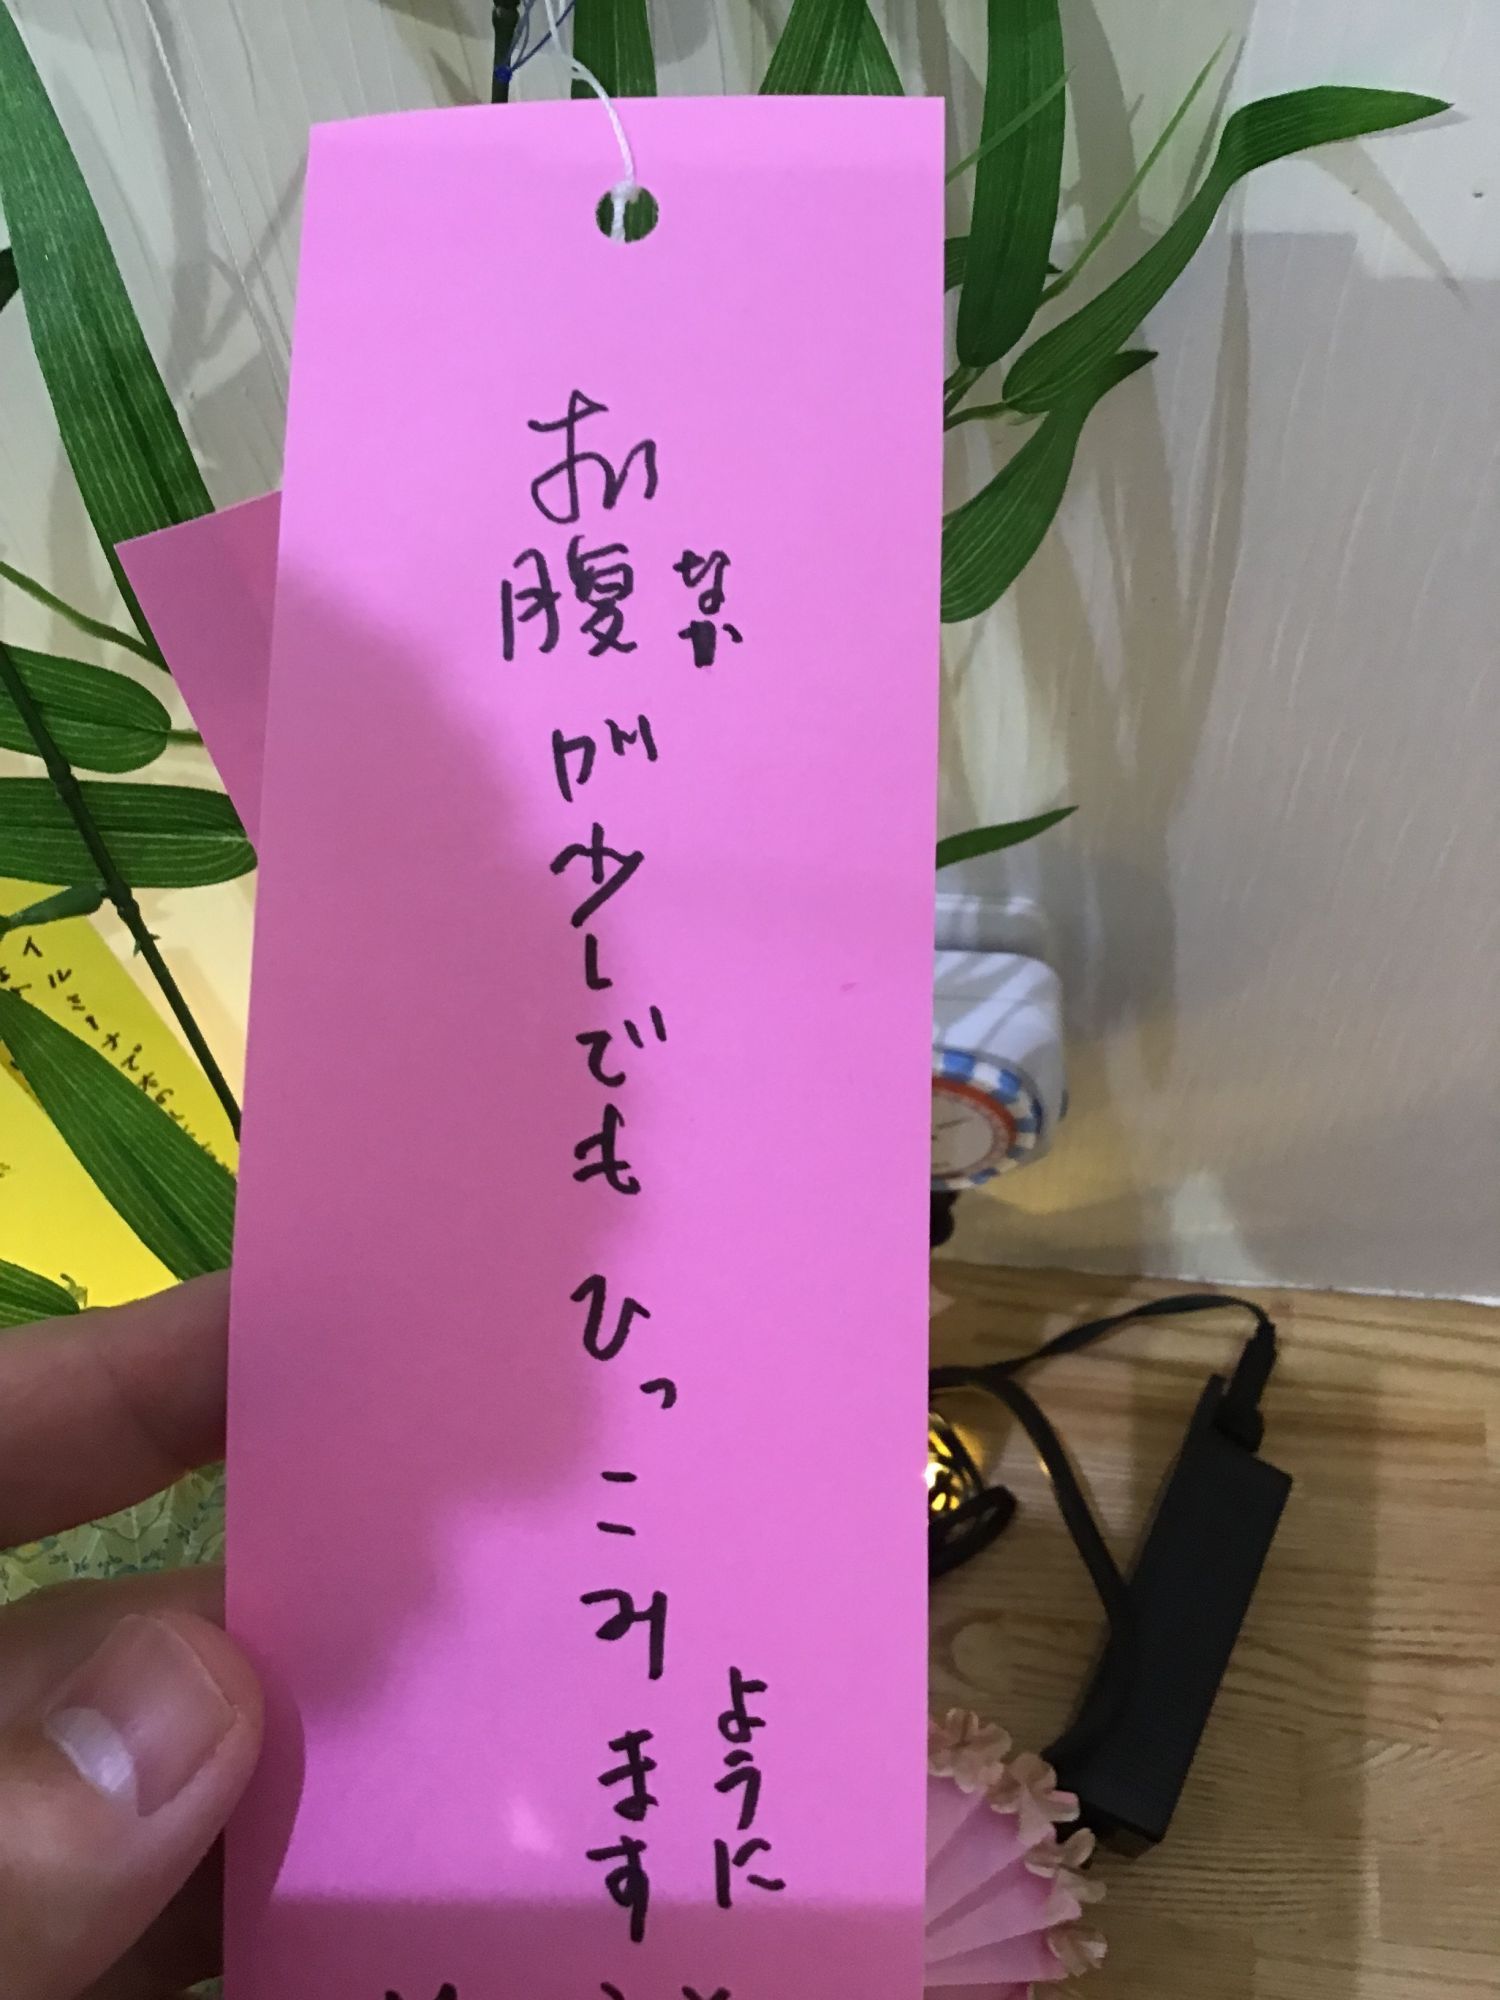 お腹が少しでもひっこみます
なか
ように